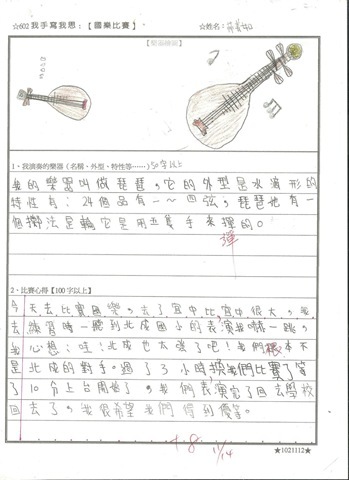 ☆602我手寫我思:【國樂比賽】
☆姓名:
【樂器繪圖】
1、我演奏的樂器(名稱、外型、特性等……)50字以上
我的樂器叫做琵琶,它的外型是水滴形的
特性有:24個品有一~四弦,琵琶也有一
個撇法是輪它是用五隻手來揮的。
彈
2、比賽心得【100字以上】
今天去比賽國樂,去了宜中比,宜中很大,我
去練習時一聽到北成國小的表演我嚇一跳,
我心想:哇!北成也太強了吧!我們根本不
是北成的對手。過了3小時換我們比賽了等
了10分上台開始了,我們表演完了回去學校
回去了,我很希望我們得到優等。
1.8
11/14
★1021112★